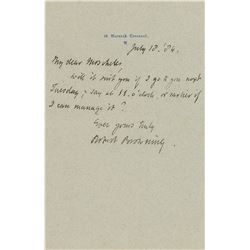 19, Warwick Crescent,
W.
July 18. '84.
My dear Moscheles,
Will it suit you if I go to you next
Tuesday, - say at 11. o'clock, or earlier if
I can manage it?
Ever yours truly
Robert Browning